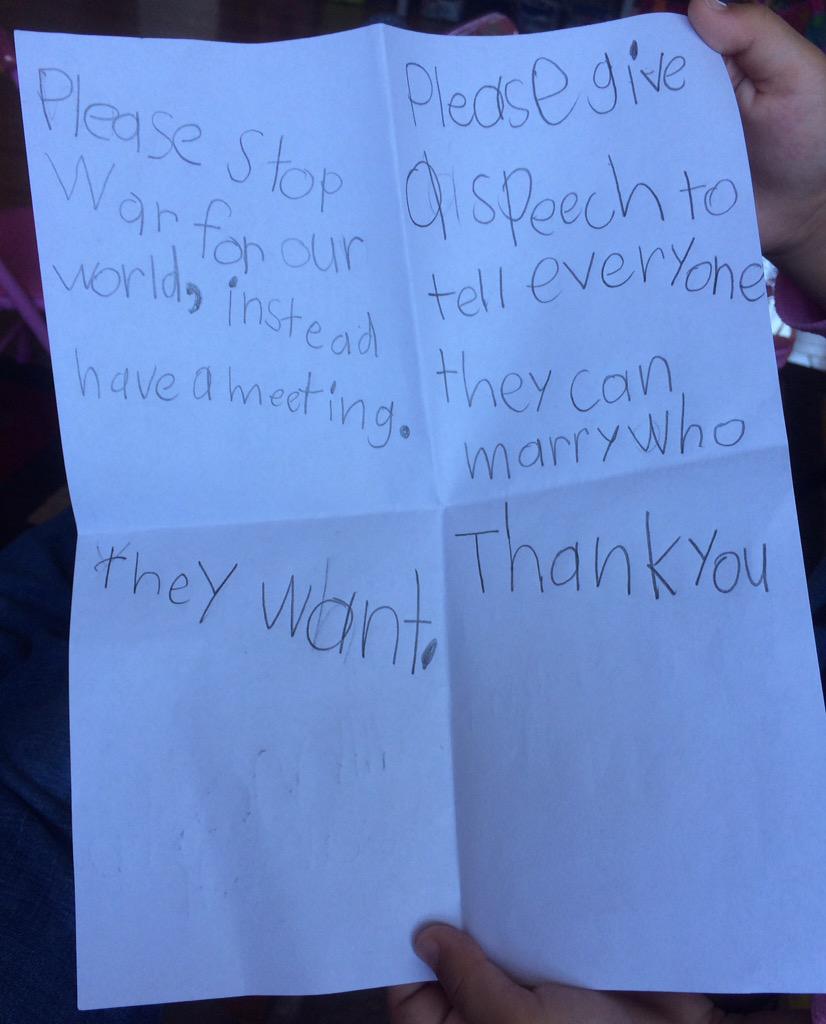 Please stop
War for our
world, instead
have a meeting.
Please give
a speech to
tell everyone
they can
marry who
they want.
Thank you